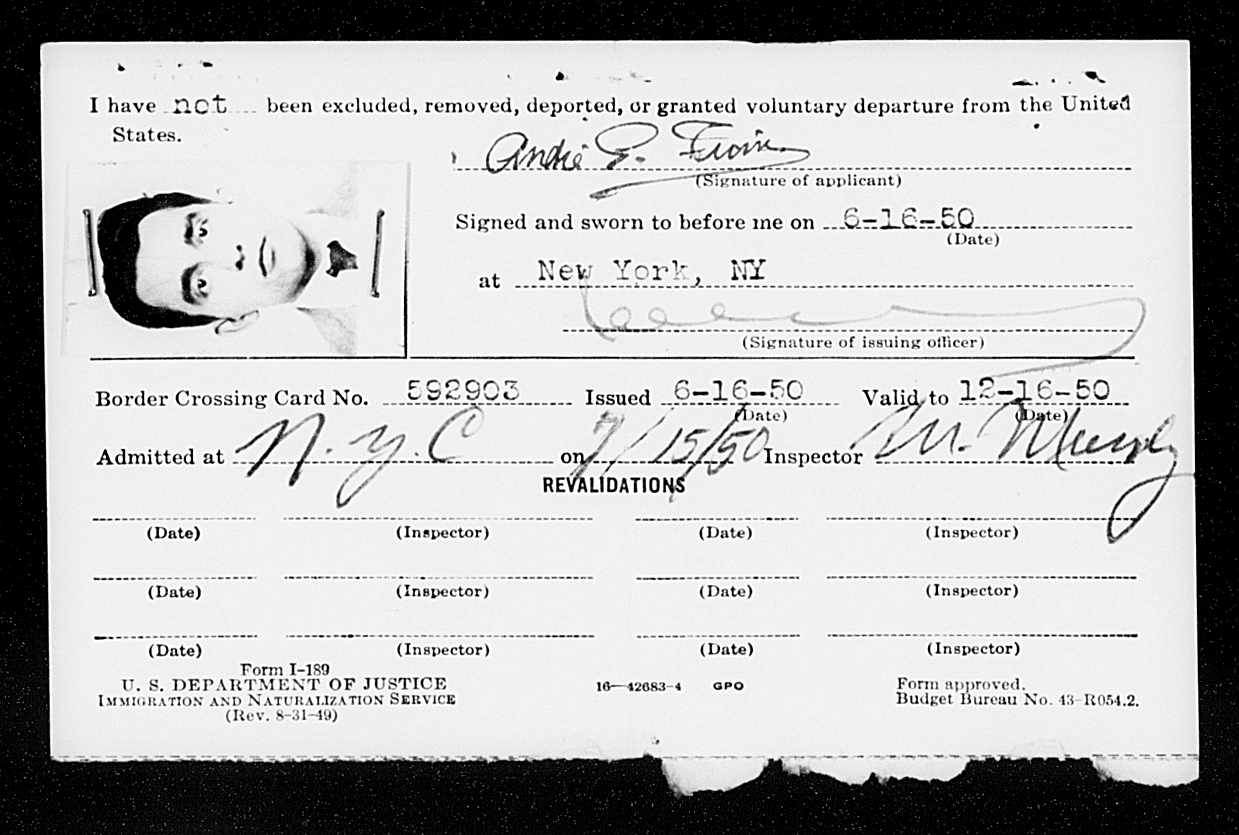 I have not been excluded, removed, deported, or granted voluntary departure from the United
States.
André
(Signature of applicant)
Signed and sworn to before me on 6-16-50
(Date)
at New York, NY
(Signature of issuing officer)
Border Crossing Card No. 592903 Issued 6-16-50 Valid to 12-16-50
(Date) (Date)
Admitted at N.Y.C on 7/15/50 Inspector M. Murphy
REVALIDATIONS
(Date) (Inspector) (Date) (Inspector)
(Date) (Inspector) (Date) (Inspector)
(Date) (Inspector) (Date) (Inspector)
Form I-189
U. S. DEPARTMENT OF JUSTICE
IMMIGRATION AND NATURALIZATION SERVICE
(Rev. 8-31-49)
16—42683-4 GPO
Form approved.
Budget Bureau No. 43-R054.2.